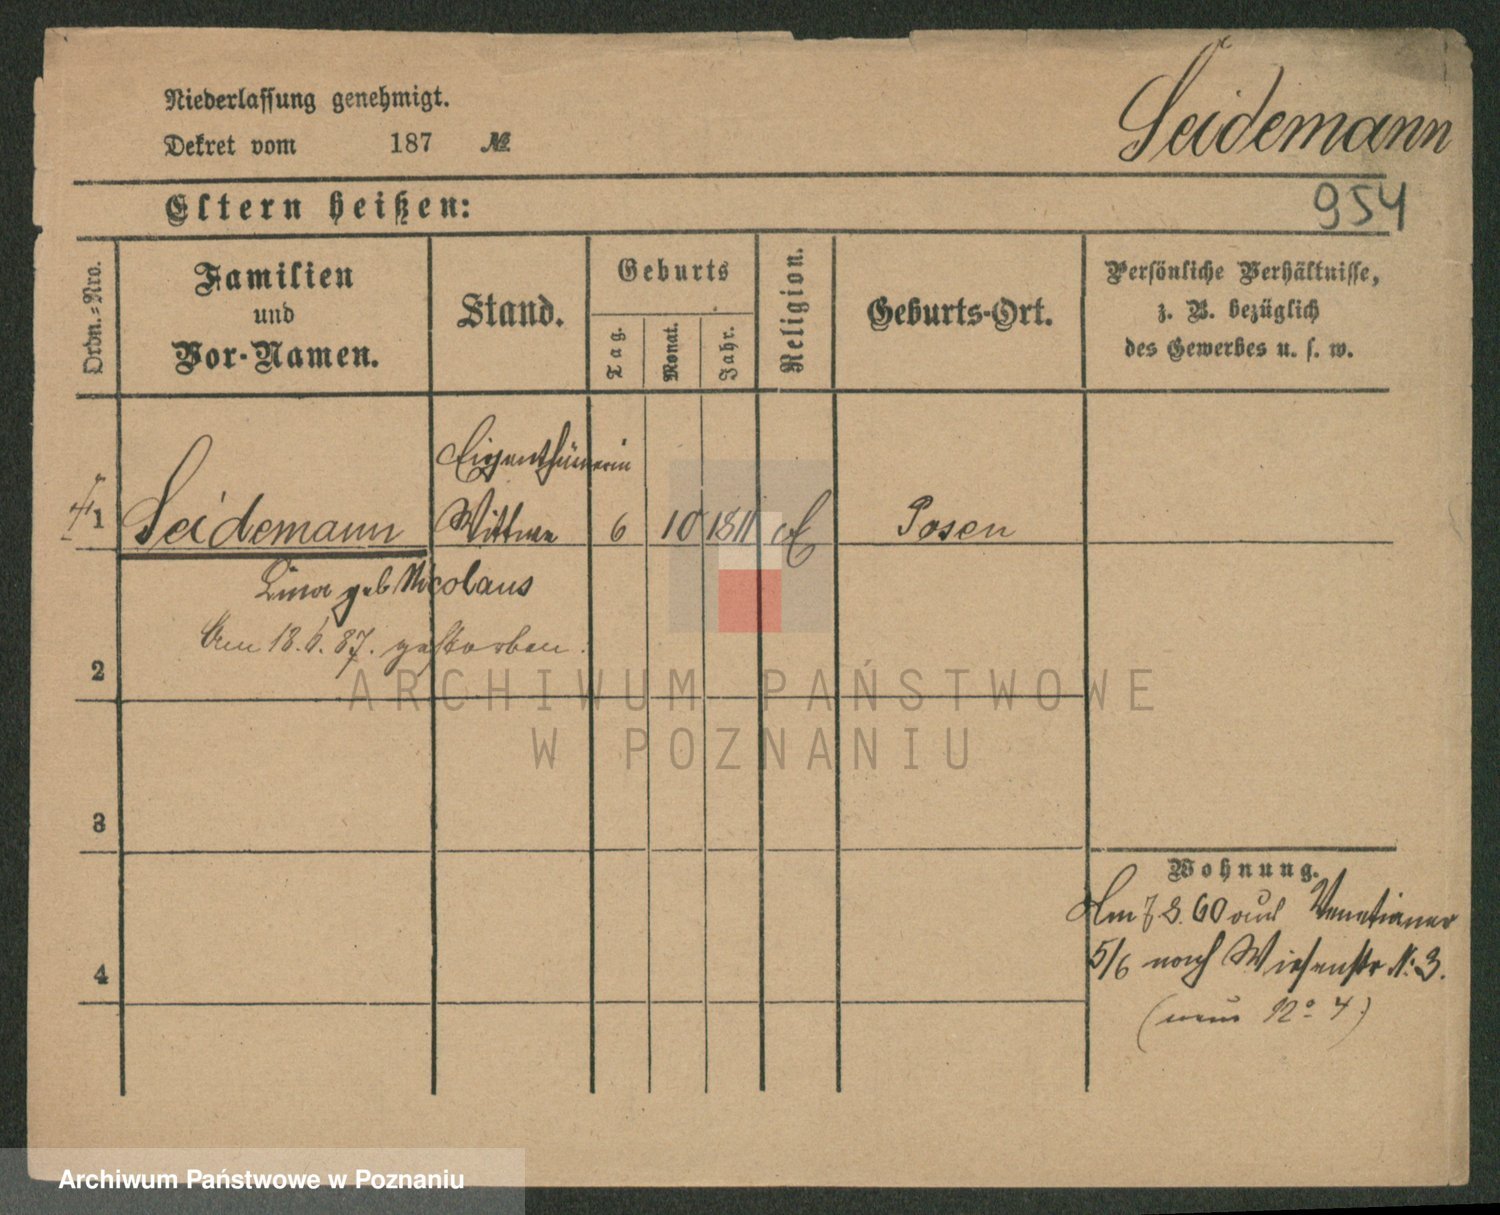 Niederlassung genehmigt.
Dekret vom 187 №
Seidemann
Eltern heißen:
954
Ordn.-Nro.
Familien
und
Vor-Namen.
Stand.
Geburts
Tag.
Monat.
Jahr.
Religion.
Geburts-Ort.
Persönliche Verhältnisse,
z. B. bezüglich
des Gewerbes u. s. w.
Eigenthümerin
1 Seidemann Wittwe 6 10 1811 Posen
Lina geb Nicolaus
Am 18.6.87. gestorben.
2
ARCHIWUM PAŃSTWOWE
W POZNANIU
3
Wohnung.
Am 7 8. 60 aus Venetianer
5/6 nach Wiesenstr N: 3.
4
(neue No 4)
Archiwum Państwowe w Poznaniu